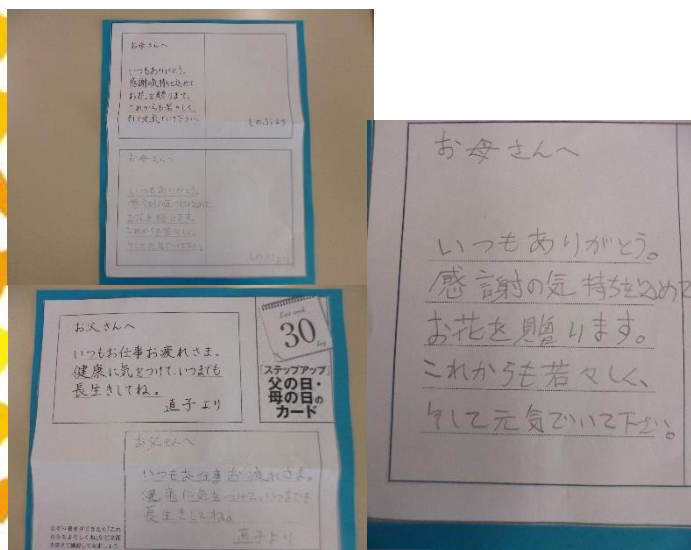 お母さんへ
いつもありがとう。
感謝の気持ちを込めて
お花を贈ります。
これからも若々しく、
そして元気でいて下さい。
しのぶより
お母さんへ
いつもありがとう。
感謝の気持ちを込めて
お花を贈ります。
これからも若々しく、
そして元気でいて下さい。
しのぶより
お父さんへ
いつもお仕事お疲れさま。
健康に気をつけて、いつまでも
長生きしてね。
直子より
Last week
30
day
「ステップアップ」
父の日・
母の日の
カード
お父さんへ
いつもお仕事お疲れさま。
健康に気をつけて、いつまでも
長生きしてね。
直子より
なぞり書きができたら「これ
お母さんへ
いつもありがとう。
感謝の気持ちを込めて
お花を贈ります。
これからも若々しく、
そして元気でいて下さい。